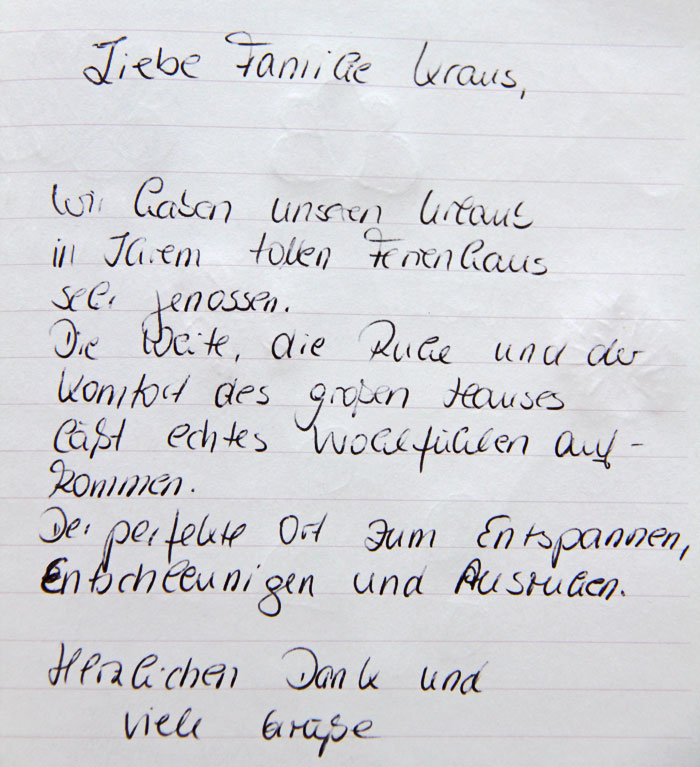 Liebe Familie Kraus,
Wir haben unseren Urlaub
in Ihrem tollen Ferienhaus
sehr genossen.
Die Weite, die Ruhe und der
Komfort des großen Hauses
läßt echtes Wohlfühlen auf-
kommen.
Der perfekte Ort zum Entspannen,
Entschleunigen und Ausruhen.
Herzlichen Dank und
viele Grüße